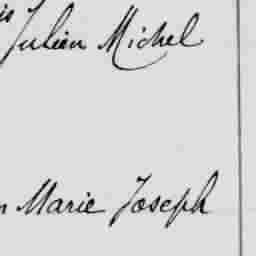 Julien Michel
Marie Joseph